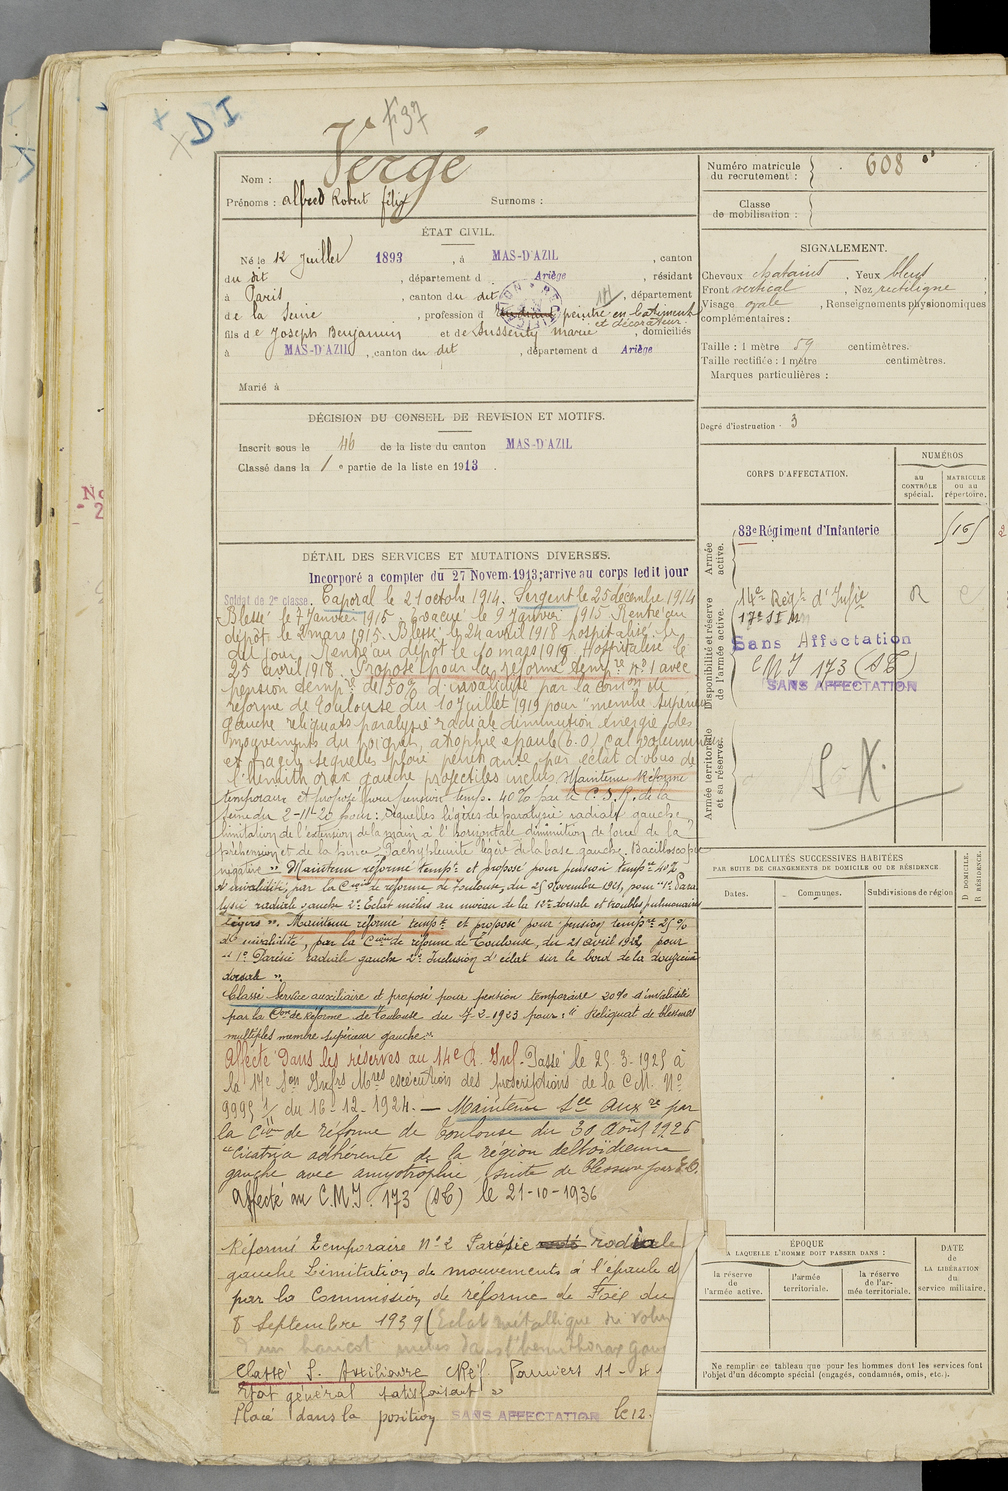 F37
D I
Vergé
Nom :
Prénoms : Alfred Robert félix Surnoms :
ÉTAT CIVIL.
Né le 12 Juillet 1893 , à MAS-D'AZIL , canton
du dit , département d Ariège , résidant
à Paris , canton du dit , département
de la Seine , profession d peintre en bâtiments
et décorateur.
fils de Joseph Benjamin et de marie , domiciliés
à MAS-D'AZIL , canton du dit , département d Ariège
Marié à
DÉCISION DU CONSEIL DE REVISION ET MOTIFS.
Inscrit sous le 46 de la liste du canton MAS-D'AZIL
Classé dans la 1 e partie de la liste en 1913 .
DÉTAIL DES SERVICES ET MUTATIONS DIVERSES.
Incorporé a compter du 27 Novem. 1913; arrive au corps ledit jour
Soldat de 2e classe. Caporal le 21 octobre 1914. Sergent le 25 décembre 1914
Blessé le 7 Janvier 1915. Evacué le 9 Janvier 1915 Rentré au
dépôt le 2 mars 1915. Blessé le 24 avril 1918 hospitalisé le
dit jour. Rentré au dépôt le 10 mars 1919. Hospitalisé le
25 avril 1918. Proposé pour la réforme temp re n° 1 avec
pension temp re de 50% d'invalidité par la Com on de
réforme de Toulouse du 10 Juillet 1919 pour "membre supérieur
gauche reliquats paralysie radiale diminution énergie des
mouvements du poignet, atrophie épaule (6.0) cal volumineux
et séquelles plaie pénétrante par éclat d'obus de
l'hémithorax gauche projectiles inclus Maintenu Réforme
temporaire et proposé pour pension temp. 40% par la C.S.R. de la
Seine du 2-11-20 pour: séquelles légères de paralysie radiale gauche,
limitation de l'extension de la main à l'horizontale diminution de force de la
préhension et de la pince. Pachypleurite légère de la base gauche. Bacilloscopie
négative". Maintenu réformé temp t et proposé pour pension temp re 40%
d'invalidité, par la C ion de réforme de Toulouse, du 25 Novembre 1921, pour "1° Para
lysie radiale gauche 2° Eclat inclus au niveau de la 12e dorsale et troubles pulmonaires
légers ". Maintenu réformé temp t et proposé pour pension temp re 25%
d'invalidité, par la C ion de réforme de Toulouse, du 21 avril 1922, pour
" 1° Parésie radiale gauche 2° Inclusion d'éclat sur le bord de la douzième
dorsale ".
Classé Service auxiliaire et proposé pour pension temporaire 20% d'invalidité
par la C on de Réforme de Toulouse du 7-2-1923 pour: " Reliquat de blessures
multiples membre supérieur gauche."
Affecté dans les réserves au 14e R. Inf. Passé le 25-3-1925 à
la 17e Son Infrs Mres exécution des prescriptions de la C.M. N°
9995 1/ du 16-12-1924. — Maintenu Sce Aux re par
la C ion de réforme de Toulouse du 30 Août 1926
"Cicatrice adhérente de la région deltoïdienne
gauche avec amyotrophie suite de blessure par E.O.
Affecté au C.M.I. 173 (SC) le 21-10-1936
Réformé Temporaire N° 2 Parésie radiale
gauche Limitation de mouvements à l'épaule d
par la Commission de réforme de Foix du
8 Septembre 1939 (Eclat métallique de volum
d'un haricot inclus dans l'hémithorax gau
Classé S. Auxiliaire Réf. Pamiers 11-41
Etat général satisfaisant "
Placé dans la position SANS AFFECTATION le 12.
Numéro matricule
du recrutement : 608
Classe
de mobilisation :
SIGNALEMENT.
Cheveux chatains . Yeux bleus ,
Front vertical , Nez rectiligne ,
Visage ovale , Renseignements physionomiques
complémentaires :
Taille : 1 mètre 59 centimètres.
Taille rectifiée : 1 mètre centimètres.
Marques particulières :
Degré d'instruction 3
CORPS D'AFFECTATION.
NUMÉROS
AU CONTRÔLE spécial.
MATRICULE ou au répertoire.
Armée active.
83e Régiment d'Infanterie
Disponibilité et réserve de l'armée active.
14e Régt d'Infie R
17e S I M
Sans Affectation
CMI 173 (SC)
SANS AFFECTATION
Armée territoriale et sa réserve.
S X.
LOCALITÉS SUCCESSIVES HABITÉES
PAR SUITE DE CHANGEMENTS DE DOMICILE OU DE RÉSIDENCE
Dates.
Communes.
Subdivisions de région
D DOMICILE.
R RÉSIDENCE.
ÉPOQUE
A LAQUELLE L'HOMME DOIT PASSER DANS :
la réserve de l'armée active.
l'armée territoriale.
la réserve de l'armée territoriale.
DATE
de
LA LIBÉRATION
du
service militaire.
Ne remplir ce tableau que pour les hommes dont les services font
l'objet d'un décompte spécial (engagés, condamnés, omis, etc.).